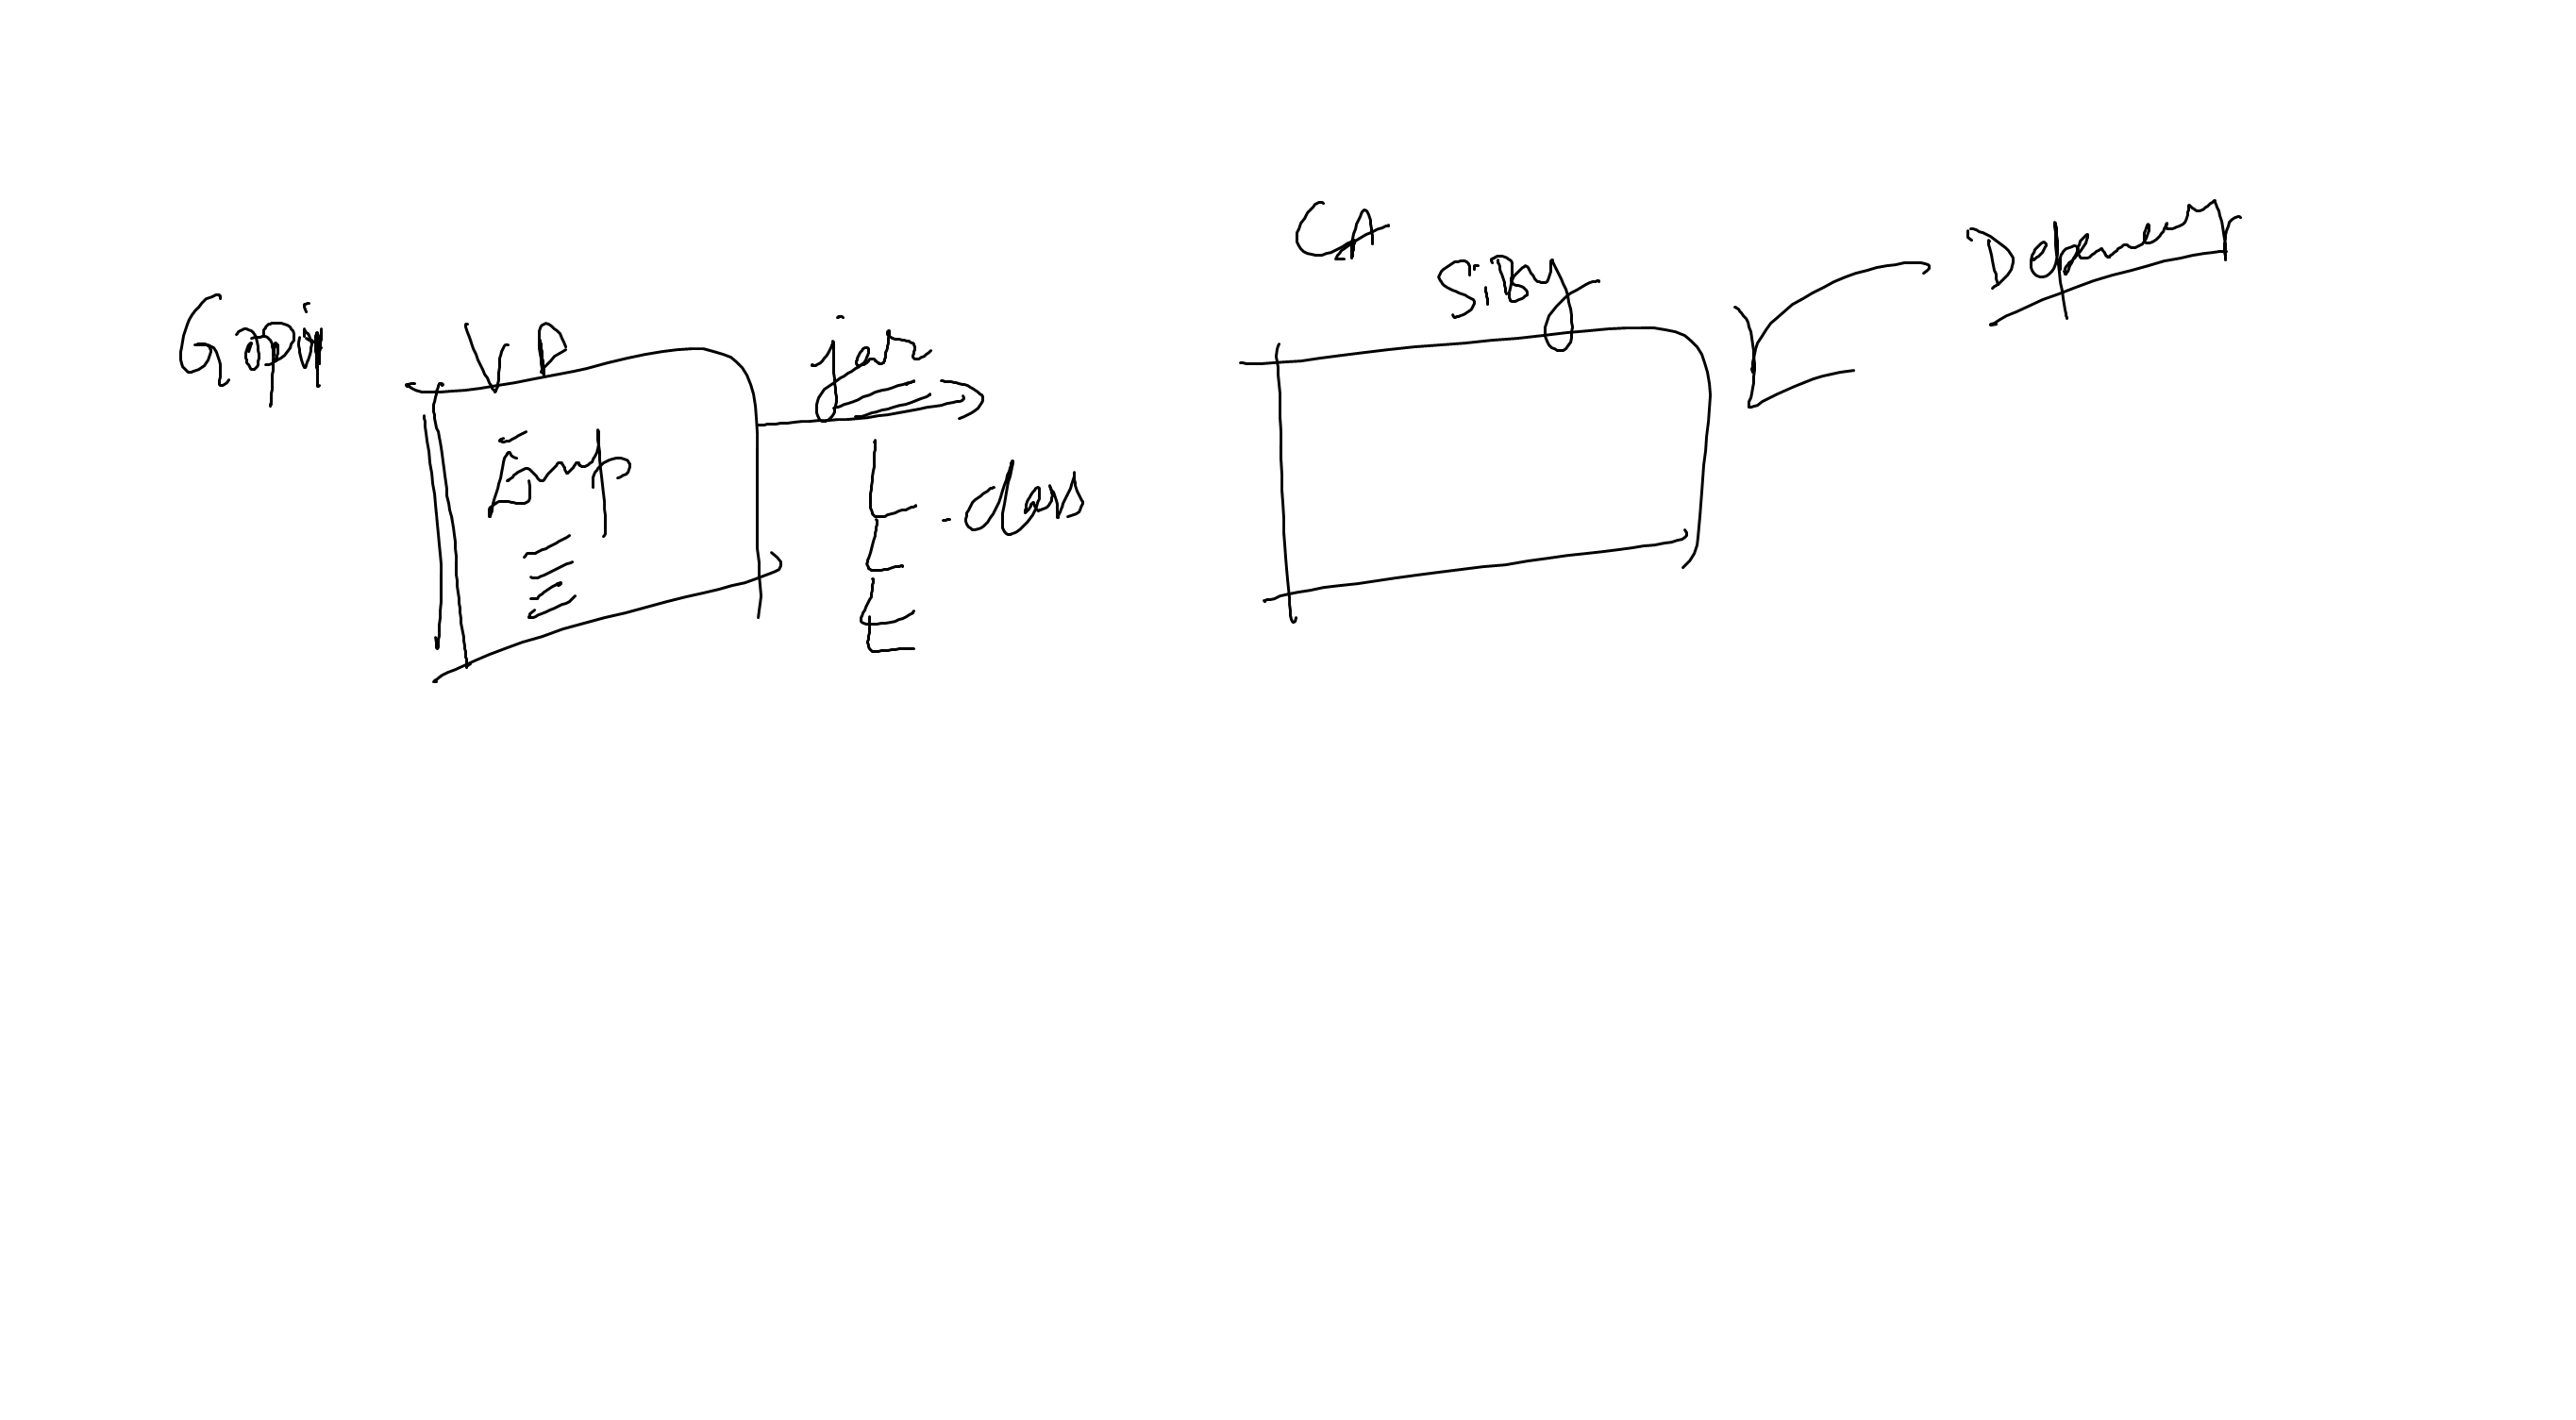 Gopi
VP
Emp
jar
.class
CA
SiBy
Depency